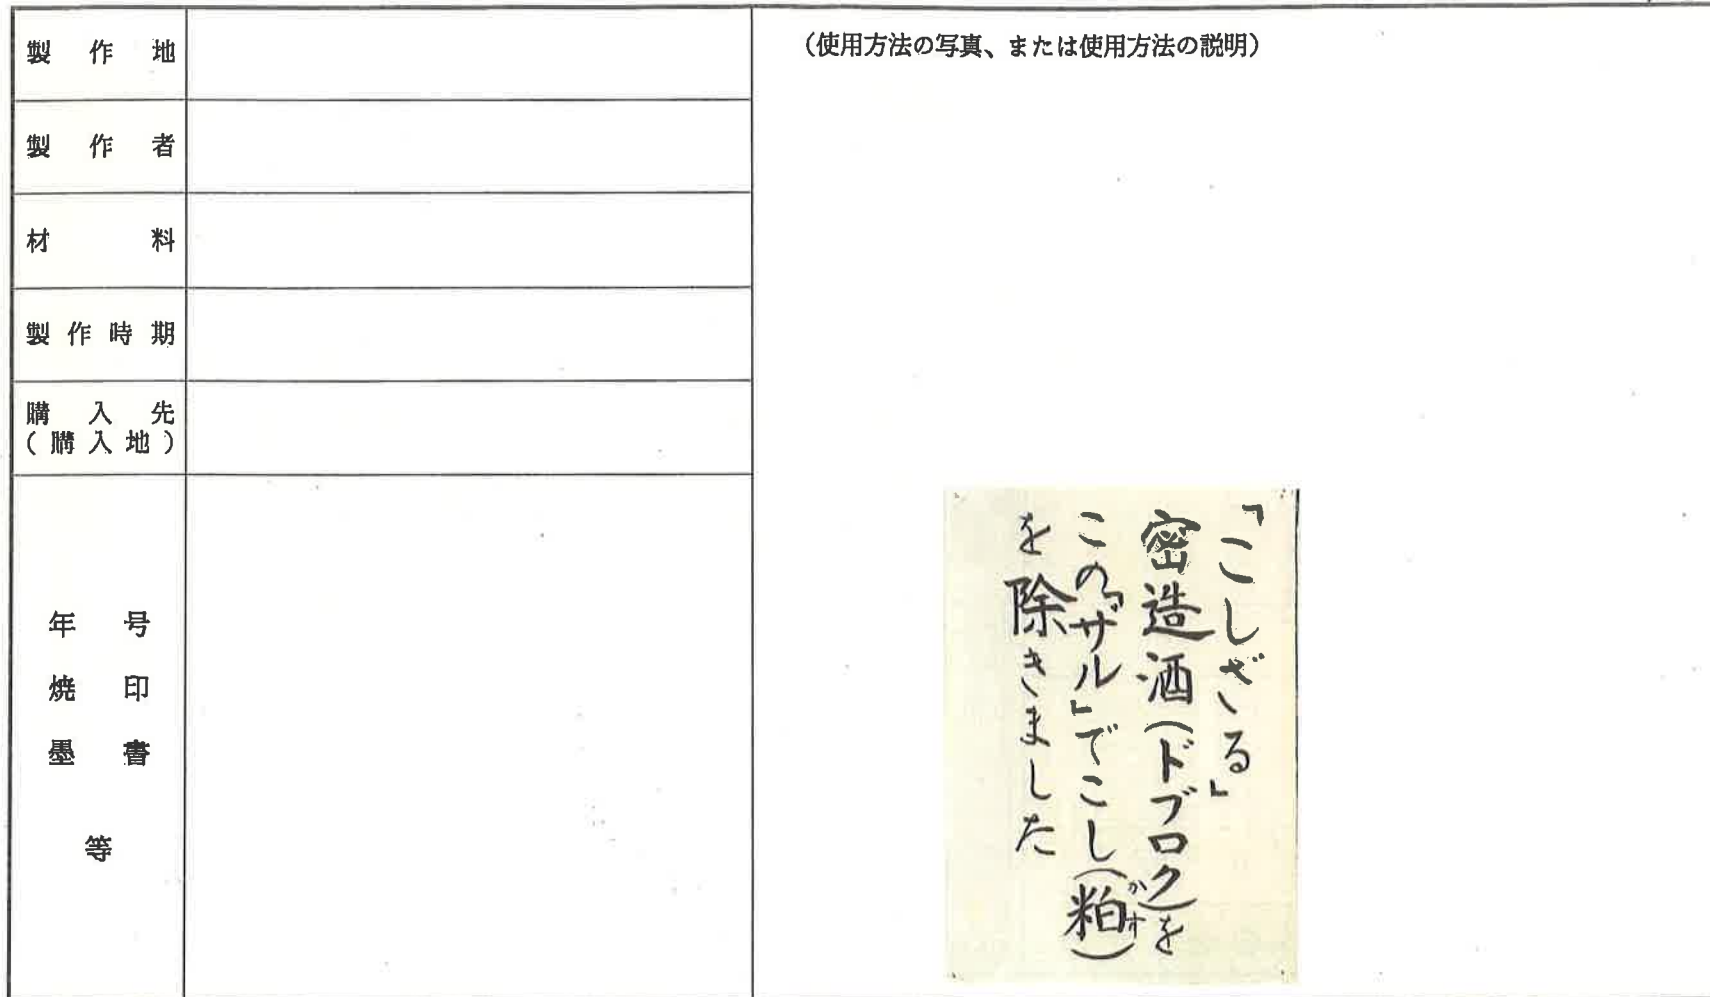 製作地
製作者
材料
製作時期
購入先
(購入地)
年号
焼印
墨書
等
(使用方法の写真、または使用方法の説明)
「こしざる」
密造酒(ドブロク)を
この「ザル」でこし(粕かす)
を除きました